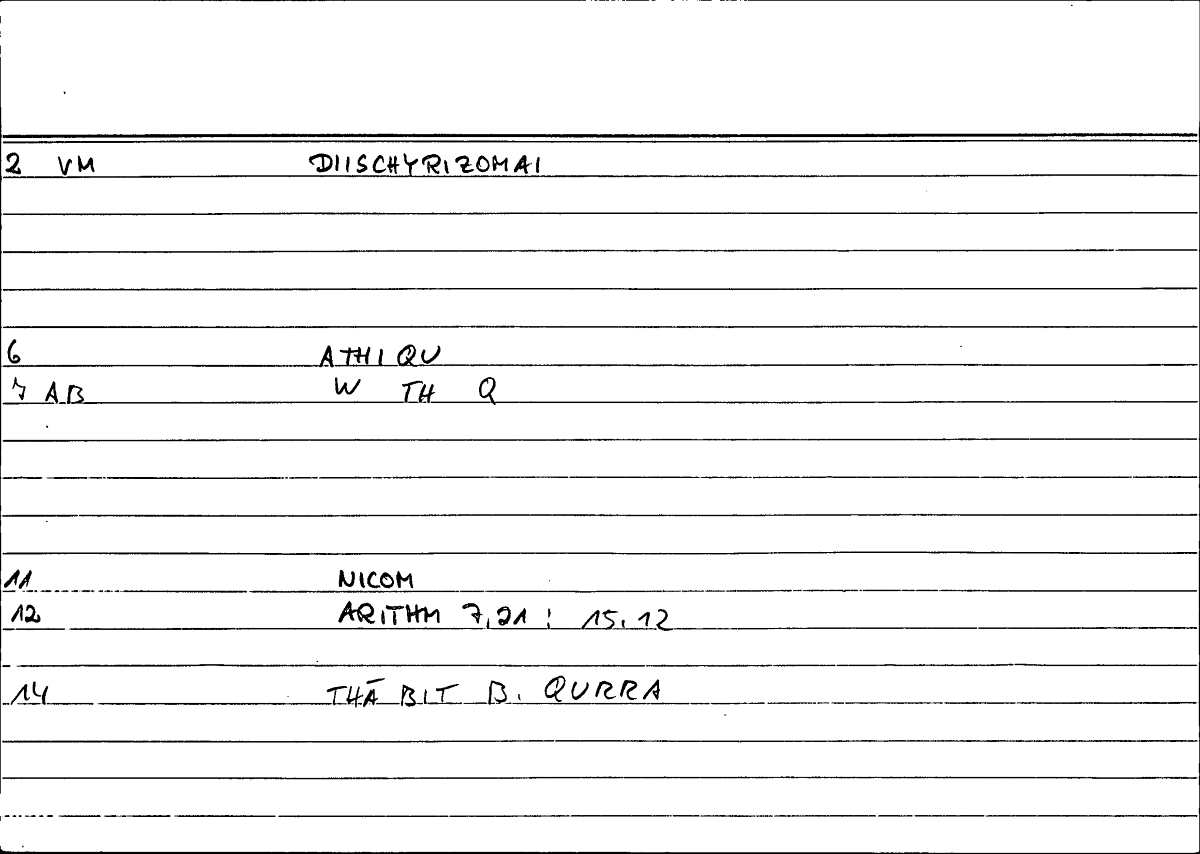 2 VM DIISCHYRIZOMAI
6 ATHIQU
7 AB W TH Q
11 NICOM
12 ARITHM 7,21 ; 15,12
14 THĀBIT B. QURRA